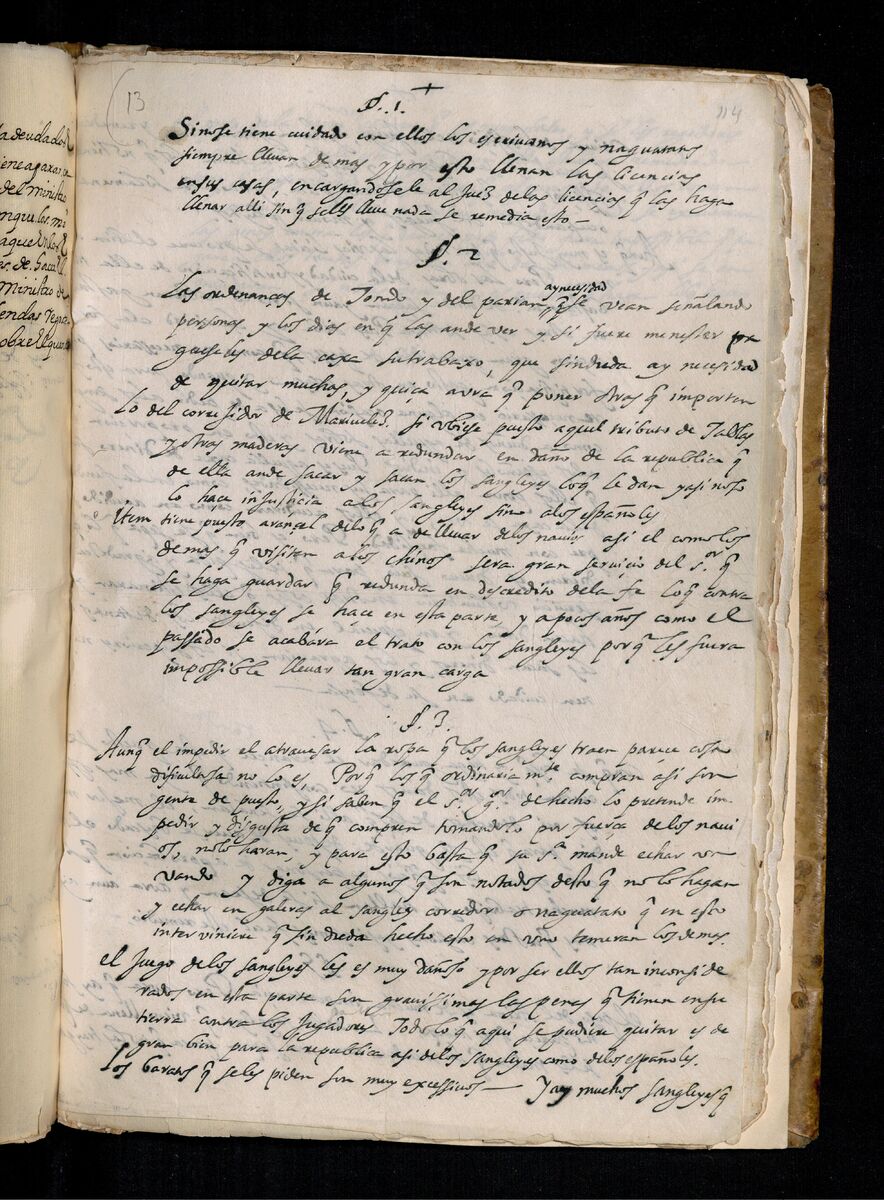 (13
114
+
§. 1.
Sinose tiene cuidado con ellos los escriuanos y naguatatos
siempre lleuan de mas y por esto llenan las licencias
en sus casas, encargandosele al Juez delas licencias q̃ las haga
llenar alli sin q̃ seles lleue nada se remedia esto —
§. 2
ay necessidad
Las ordenanças de Tondo y del parian q̃ se vean señalando
personas y los dias en q̃ las ande ver y si fuere menester pa
gueseles dela caxa su trabaxo, que sin duda ay necesidad
de quitar muchas, y quiça aura q̃ poner otras q̃ importen
Lo del coregidor de Mariuelez. si vbiese puesto aquel tributo de Tablas
y otras maderas viene a redundar en daño de la republica q̃
de ella ande sacar y sacan los sangleyes loq̃ le dan y asi no so
lo haçe injusticia alos sangleyes sino alos españoles
Item tiene puesto arançel delo q̃ a de lleuar delos nauios asi el como los
demas q̃ visitan alos chinos sera gran seruicio del s.or q̃
se haga guardar q̃ redunda en descredito dela fe loq̃ contra
los sangleyes se haçe en esta parte, y a pocos años como el
passado se acabára el trato con los sangleyes porq̃ les fuera
impossible lleuar tan gran carga
§. 3.
Aunq̃ el impedir el atrauesar la ropa q̃ los sangleyes traen pareçe cosa
dificultosa no lo es, Porq̃ los q̃ ordinaria m.te compran asi son
gente de puesto, y si saben q̃ el s.or g.or de hecho lo pretende im-
pedir y disgusta de q̃ compren tomandolo por fuerça delos naui
os, nolo haran, y para esto basta q̃ su s.a mande echar vn
vando y diga a algunos q̃ son notados desto q̃ no lo hagan
y echar en galeras al sangley corredor o naguatato q̃ en esto
interviniere q̃ sin duda hecho esto en vno temeran los demas.
el Juego delos sangleyes les es muy dañoso y por ser ellos tan inconside
rados en esta parte son grauissimas las penas q̃ tienen en su
tierra contra los Jugadores Todo lo q̃ aqui se pudiere quitar es de
gran bien para la republica asi delos sangleyes como delos españoles.
Los baratos q̃ seles piden son muy excessiuos — Y ay muchos sangleyes q̃